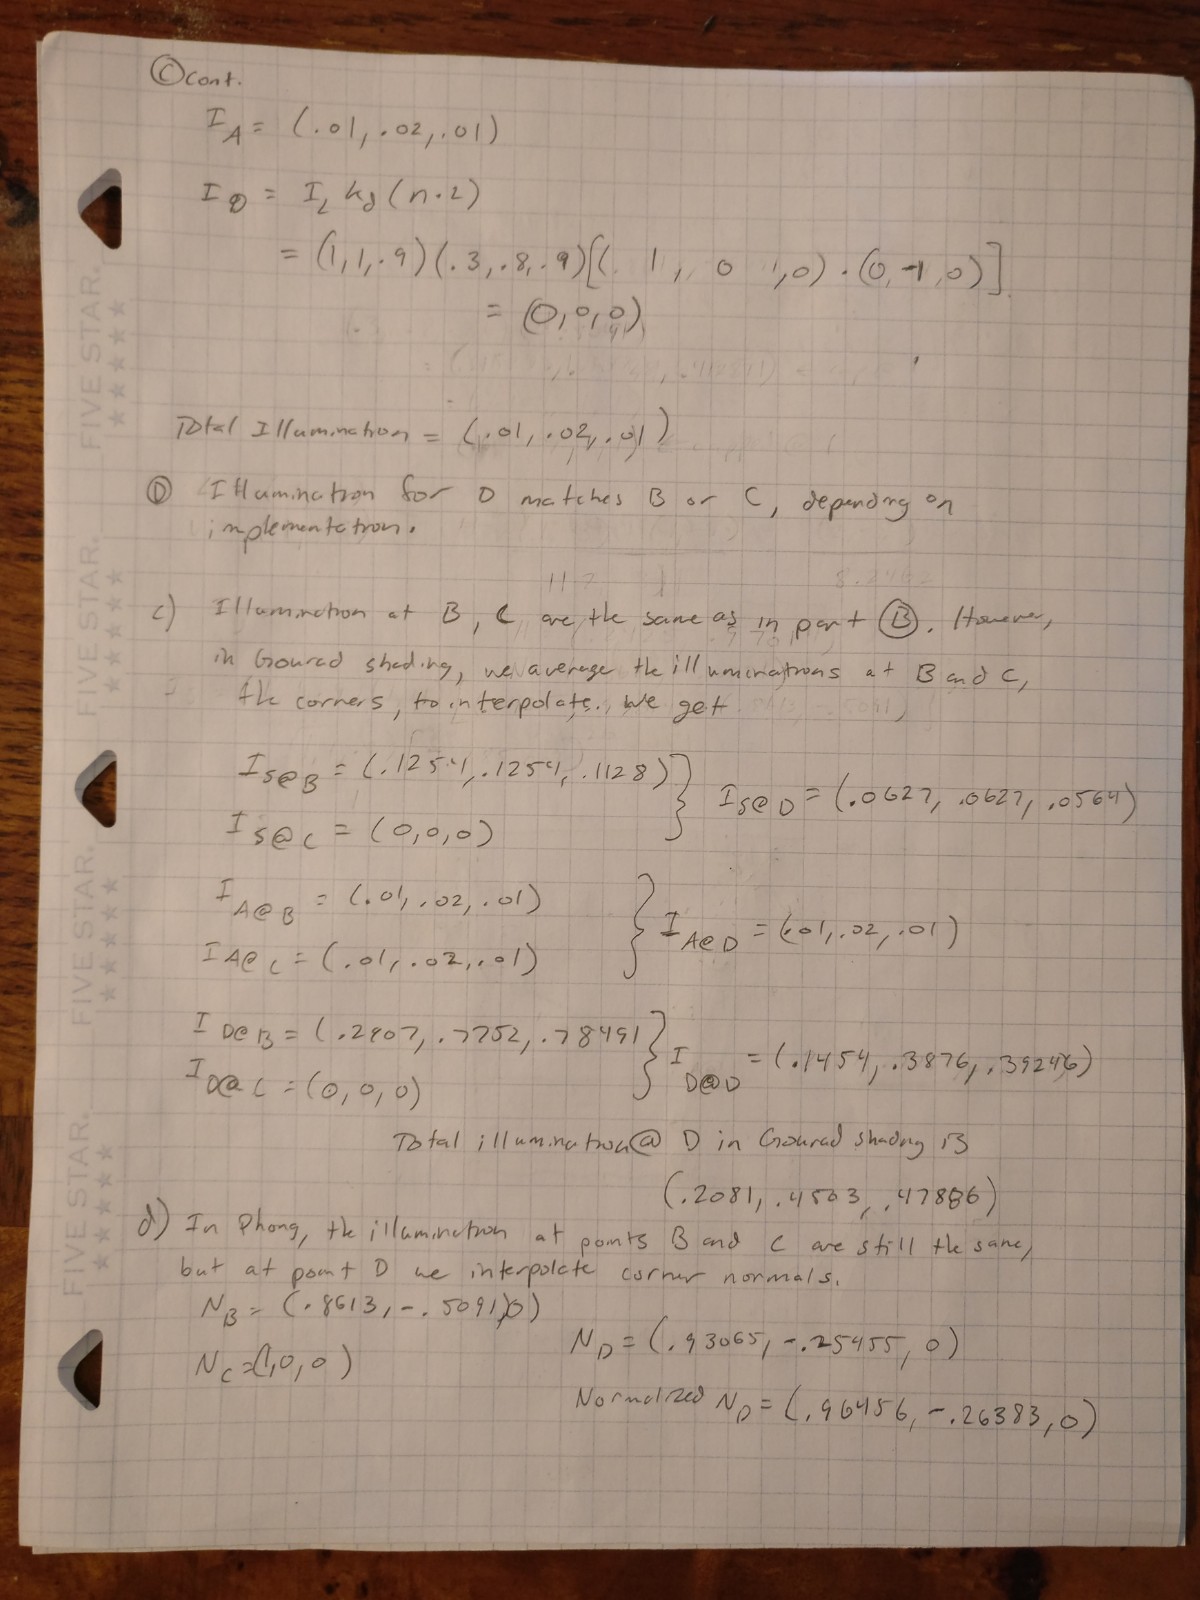 Ⓒ cont.
I_A = (.01, .02, .01)
I_D = I_L k_d (n·L)
= (1,1,.9)(.3,.8,.9)[(1, 0, 0)·(0,-1,0)]
= (0,0,0)
Total Illumination = (.01, .02, .01)
Ⓓ Illumination for D matches B or C, depending on
implementation.
c) Illumination at B, C are the same as in part Ⓑ. However,
in Gourad shading, we average the illuminations at B and C,
the corners, to interpolate. We get
I_S@B = (.1254, .1254, .1128) } I_S@D = (.0627, .0627, .0564)
I_S@C = (0,0,0)
I_A@B = (.01, .02, .01)
} I_A@D = (.01, .02, .01)
I_A@C = (.01, .02, .01)
I_D@B = (.2907, .7752, .78491 } I_D@D = (.1454, .3876, .39246)
I_D@C = (0,0,0)
Total illumination @ D in Gourad shading is
(.2081, .4503, .47886)
d) In Phong, the illumination at points B and C are still the same,
but at point D we interpolate corner normals.
N_B = (.8613, -.5091, 0)
N_D = (.93065, -.25455, 0)
N_C = (1,0,0)
Normalized N_D = (.96456, -.26383, 0)
FIVE STAR.
FIVE STAR.
FIVE STAR.
FIVE STAR.